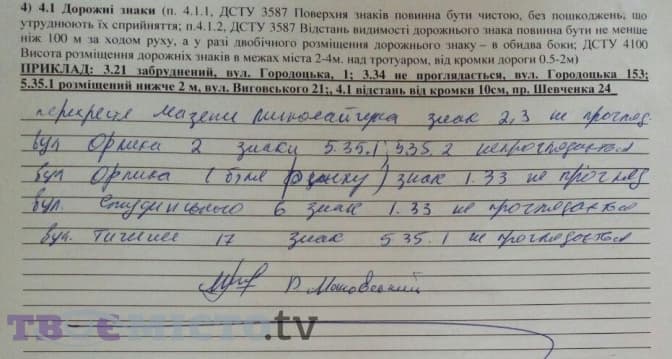 4) 4.1 Дорожні знаки (п. 4.1.1, ДСТУ 3587 Поверхня знаків повинна бути чистою, без пошкоджень, що
утруднюють їх сприйняття; п.4.1.2, ДСТУ 3587 Відстань видимості дорожнього знака повинна бути не менше
ніж 100 м за ходом руху, а у разі двобічного розміщення дорожнього знаку – в обидва боки; ДСТУ 4100
Висота розміщення дорожніх знаків в межах міста 2-4м. над тротуаром, від кромки дороги 0.5-2м)
ПРИКЛАД: 3.21 забруднений, вул. Городоцька, 1; 3.34 не проглядається, вул. Городоцька 153;
5.35.1 розміщений нижче 2 м, вул. Виговського 21;, 4.1 відстань від кромки 10см, пр. Шевченка 24
перехрестя Мазепи знак 2,3 не прогляд.
вул Орлика 2 знаки 5.35.1, 5.35.2 непроглядається
вул Орлика (біля ринку) знак 1.33 не прогляд
вул. 6 знак 1.33 не проглядається
вул. Тичини 17 знак 5.35.1 не проглядається
ТВОЄМІСТО.tv